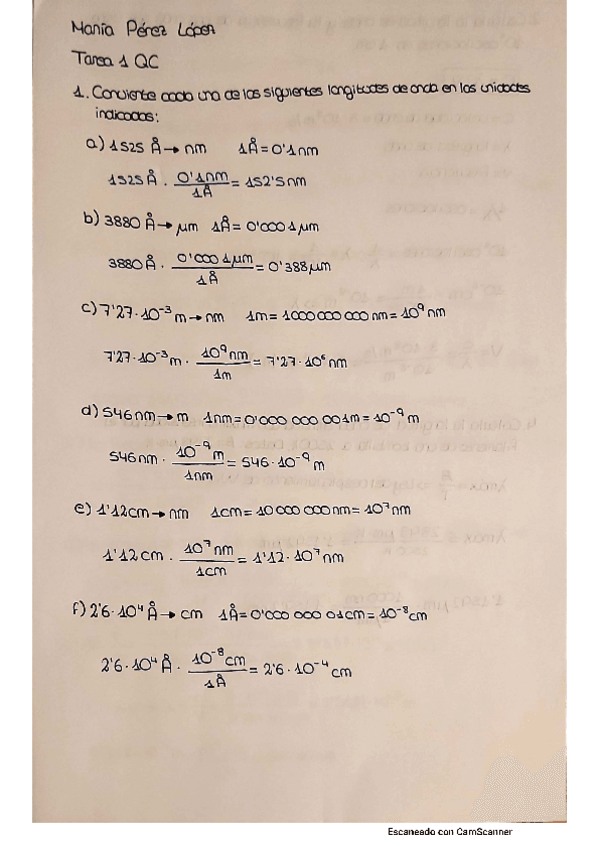 María Pérez López
Tarea 1 QC
1. Convierte cada una de las siguientes longitudes de onda en las unidades
indicadas:
a) 1525 Å → nm 1Å = 0'1nm
1525 Å · 0'1nm / 1Å = 152'5 nm
b) 3880 Å → μm 1Å = 0'000 1 μm
3880 Å · 0'000 1 μm / 1Å = 0'388 μm
c) 7'27·10⁻³ m → nm 1m = 1000 000 000 nm = 10⁹ nm
7'27·10⁻³ m · 10⁹ nm / 1m = 7'27·10⁶ nm
d) 546 nm → m 1nm = 0'000 000 001m = 10⁻⁹ m
546 nm · 10⁻⁹ m / 1nm = 546·10⁻⁹ m
e) 1'12cm → nm 1cm = 10 000 000 nm = 10⁷ nm
1'12 cm · 10⁷ nm / 1cm = 1'12·10⁷ nm
f) 2'6·10⁴ Å → cm 1Å = 0'000 000 01cm = 10⁻⁸ cm
2'6·10⁴ Å · 10⁻⁸ cm / 1Å = 2'6·10⁻⁴ cm
Escaneado con CamScanner